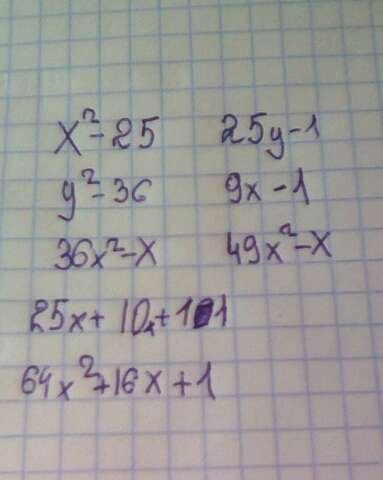 x²-25 25y-1
y²-36 9x-1
36x²-x 49x²-x
25x+10x+1 1
64x²+16x+1